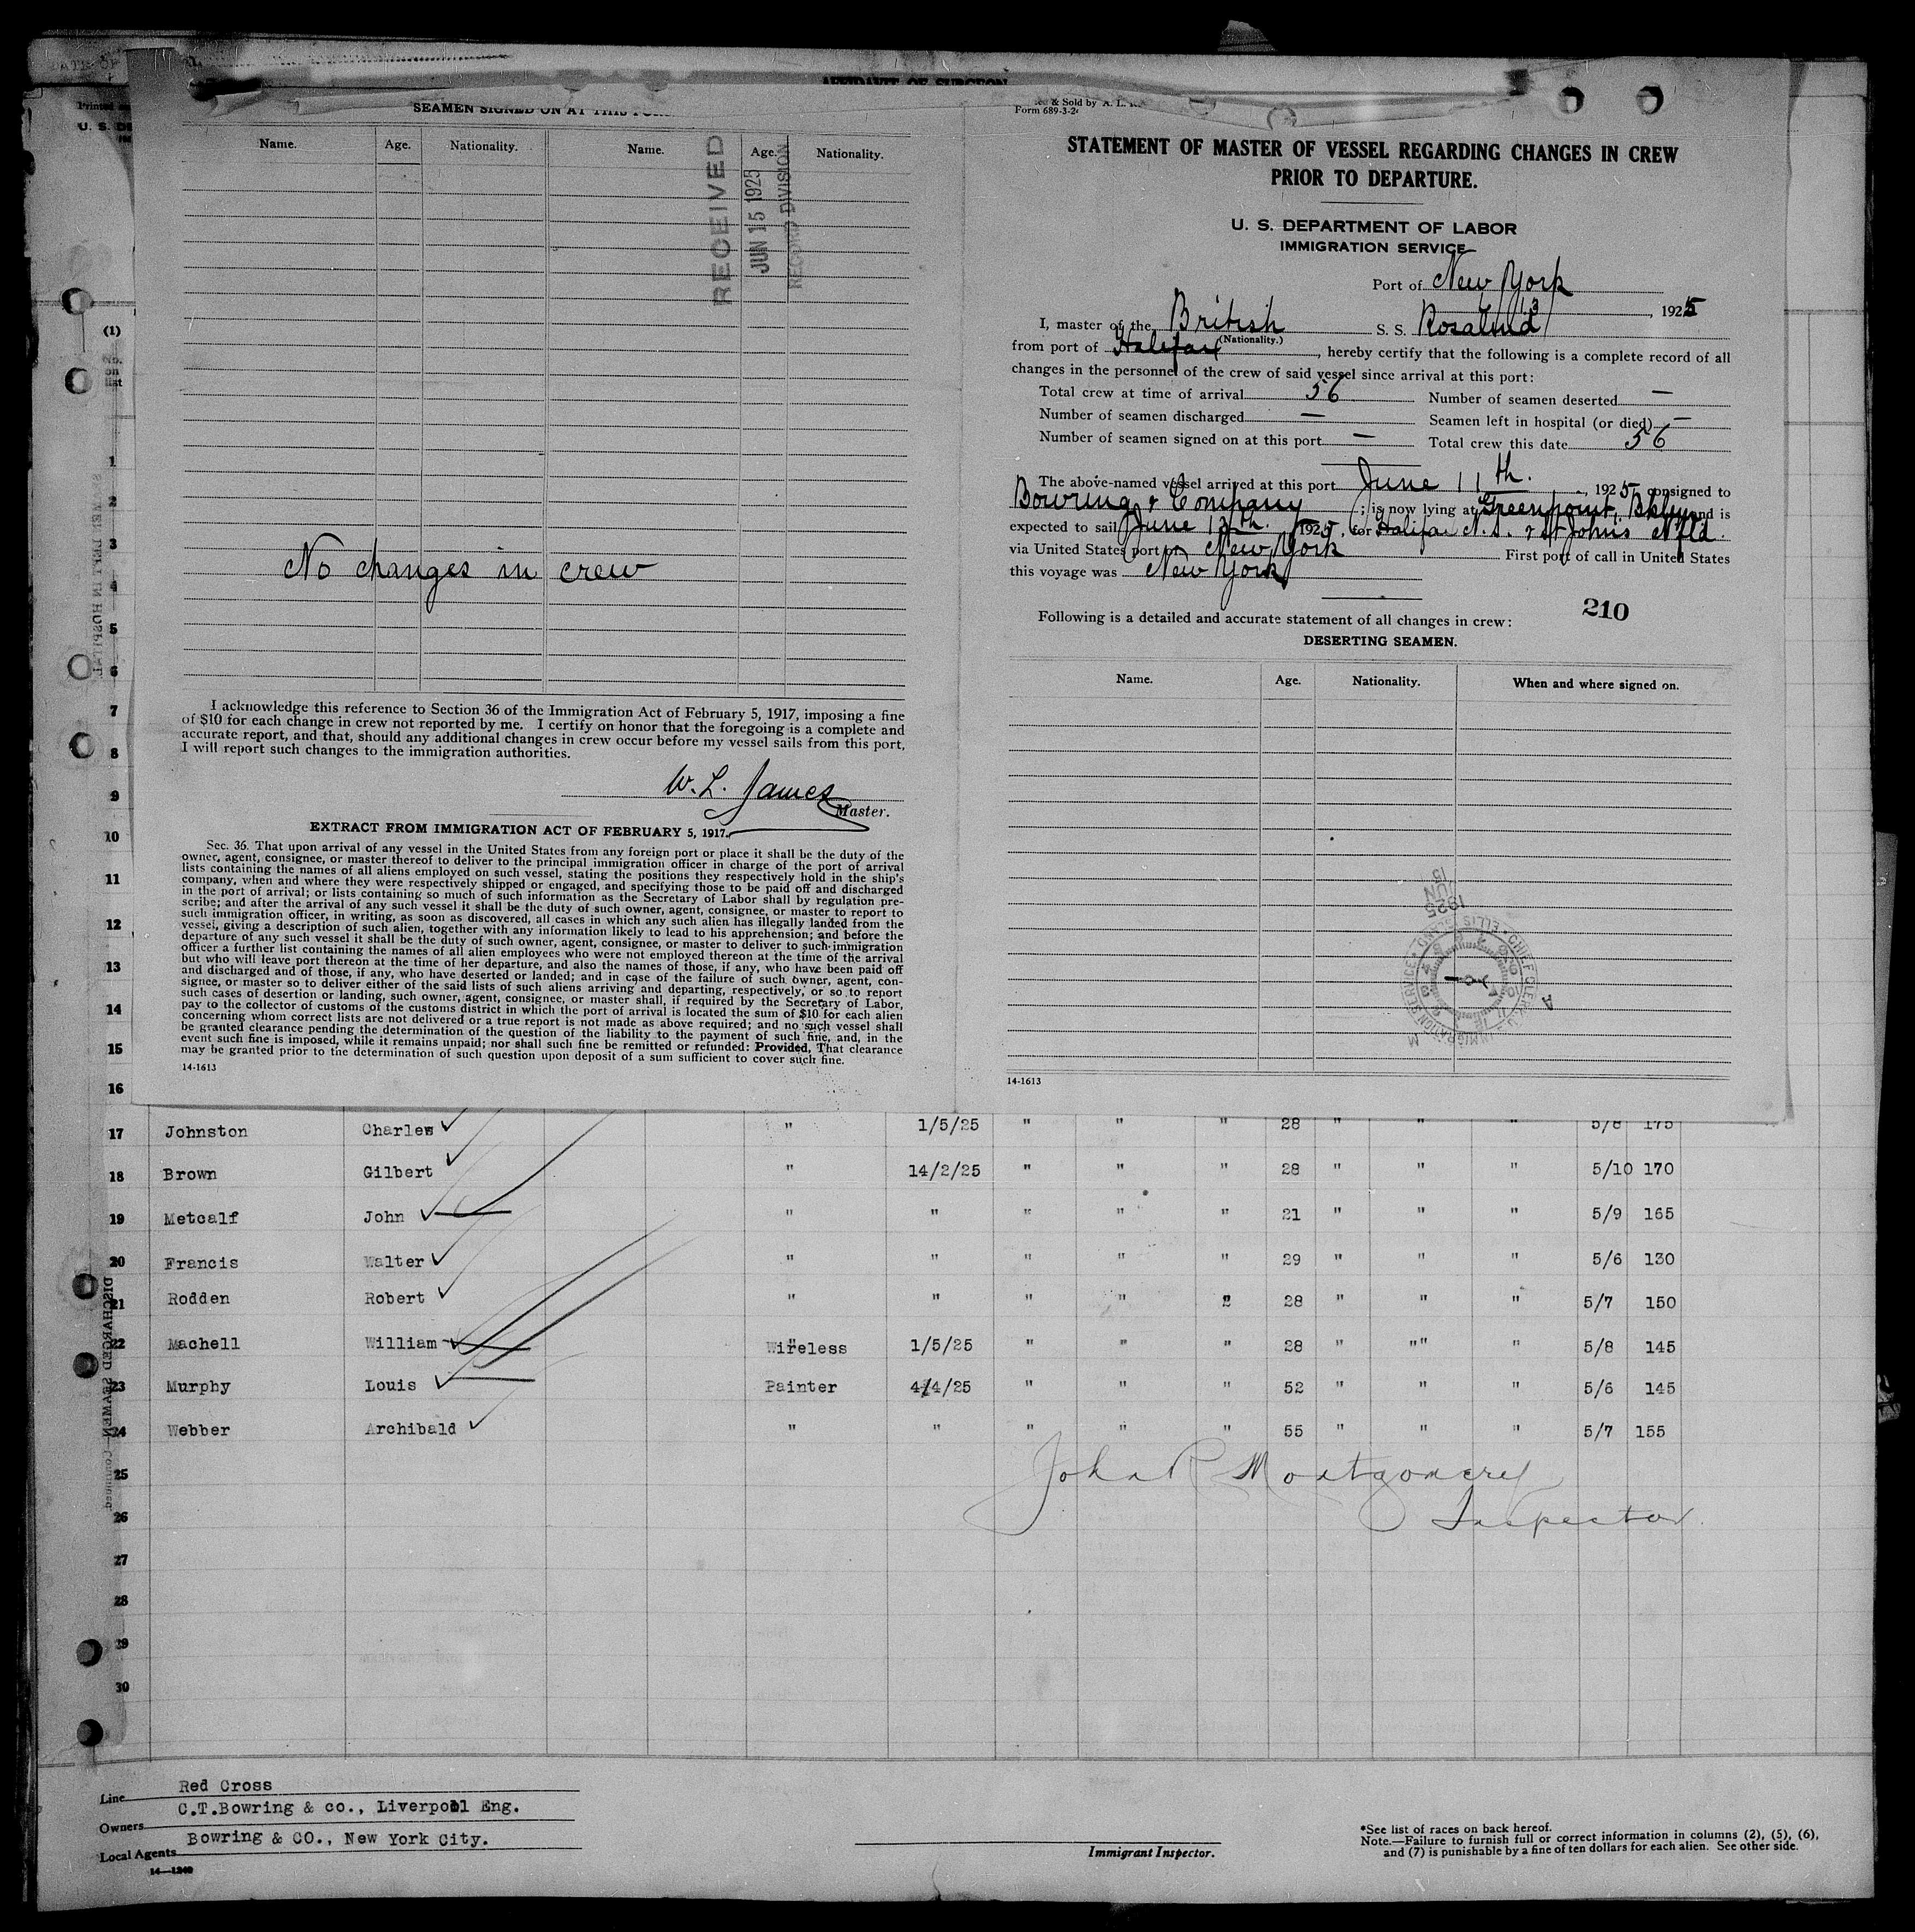 AFFIDAVIT OF SURGEON
SEAMEN SIGNED ON AT THIS
Name. Age. Nationality. Name. Age. Nationality.
RECEIVED
JUN 15 1925
RECORD DIVISION
No changes in crew
I acknowledge this reference to Section 36 of the Immigration Act of February 5, 1917, imposing a fine
of $10 for each change in crew not reported by me. I certify on honor that the foregoing is a complete and
accurate report, and that, should any additional changes in crew occur before my vessel sails from this port,
I will report such changes to the immigration authorities.
W. L. James
Master.
EXTRACT FROM IMMIGRATION ACT OF FEBRUARY 5, 1917.
Sec. 36. That upon arrival of any vessel in the United States from any foreign port or place it shall be the duty of the
owner, agent, consignee, or master thereof to deliver to the principal immigration officer in charge of the port of arrival
lists containing the names of all aliens employed on such vessel, stating the positions they respectively hold in the ship's
company, when and where they were respectively shipped or engaged, and specifying those to be paid off and discharged
in the port of arrival; or lists containing so much of such information as the Secretary of Labor shall by regulation pre-
scribe; and after the arrival of any such vessel it shall be the duty of such owner, agent, consignee, or master to report to
such immigration officer, in writing, as soon as discovered, all cases in which any such alien has illegally landed from the
vessel, giving a description of such alien, together with any information likely to lead to his apprehension; and before the
departure of any such vessel it shall be the duty of such owner, agent, consignee, or master to deliver to such immigration
officer a further list containing the names of all alien employees who were not employed thereon at the time of the arrival
but who will leave port thereon at the time of her departure, and also the names of those, if any, who have been paid off
and discharged and of those, if any, who have deserted or landed; and in case of the failure of such owner, agent, con-
signee, or master so to deliver either of the said lists of such aliens arriving and departing, respectively, or so to report
such cases of desertion or landing, such owner, agent, consignee, or master shall, if required by the Secretary of Labor,
pay to the collector of customs of the customs district in which the port of arrival is located the sum of $10 for each alien
concerning whom correct lists are not delivered or a true report is not made as above required; and no such vessel shall
be granted clearance pending the determination of the question of the liability to the payment of such fine, and, in the
event such fine is imposed, while it remains unpaid; nor shall such fine be remitted or refunded: Provided, That clearance
may be granted prior to the determination of such question upon deposit of a sum sufficient to cover such fine.
14-1613
& Sold by A. L.
Form 689-3-24
STATEMENT OF MASTER OF VESSEL REGARDING CHANGES IN CREW
PRIOR TO DEPARTURE.
U. S. DEPARTMENT OF LABOR
IMMIGRATION SERVICE
Port of New York
13, 1925
I, master of the British S. S. Rosalind
(Nationality.)
from port of Halifax, hereby certify that the following is a complete record of all
changes in the personnel of the crew of said vessel since arrival at this port:
Total crew at time of arrival 56 Number of seamen deserted —
Number of seamen discharged — Seamen left in hospital (or died) —
Number of seamen signed on at this port — Total crew this date 56
The above-named vessel arrived at this port June 11th., 1925 consigned to
Bowring & Company; is now lying at Greenpoint, Bklyn and is
expected to sail June 13th. 1925, for Halifax N.S. & St Johns Nfld.
via United States port of New York First port of call in United States
this voyage was New York
210
Following is a detailed and accurate statement of all changes in crew:
DESERTING SEAMEN.
Name. Age. Nationality. When and where signed on.
1925
JUN
15
CHIEF CLERK U.S. IMMIGRATION SERVICE ELLIS ISLAND
14-1613
(1)
1
2
3
4
5
6
7
8
9
10
11
12
13
14
15
16
17 Johnston Charles " 1/5/25 " " " 28 " " " 5/8 175
18 Brown Gilbert " 14/2/25 " " " 28 " " " 5/10 170
19 Metcalf John " " " " " 21 " " " 5/9 165
20 Francis Walter " " " " " 29 " " " 5/6 130
21 Rodden Robert " " " " 2 28 " " " 5/7 150
22 Machell William Wireless 1/5/25 " " " 28 " "" " 5/8 145
23 Murphy Louis Painter 4/4/25 " " " 52 " " " 5/6 145
24 Webber Archibald " " " " " 55 " " " 5/7 155
25
26
27
28
29
30
John R Montgomery
Inspector
DISCHARGED SEAMEN—Continued
Line Red Cross
Owners C.T.Bowring & co., Liverpool Eng.
Local Agents Bowring & CO., New York City.
14—1240
Immigrant Inspector.
*See list of races on back hereof.
Note.—Failure to furnish full or correct information in columns (2), (5), (6),
and (7) is punishable by a fine of ten dollars for each alien. See other side.